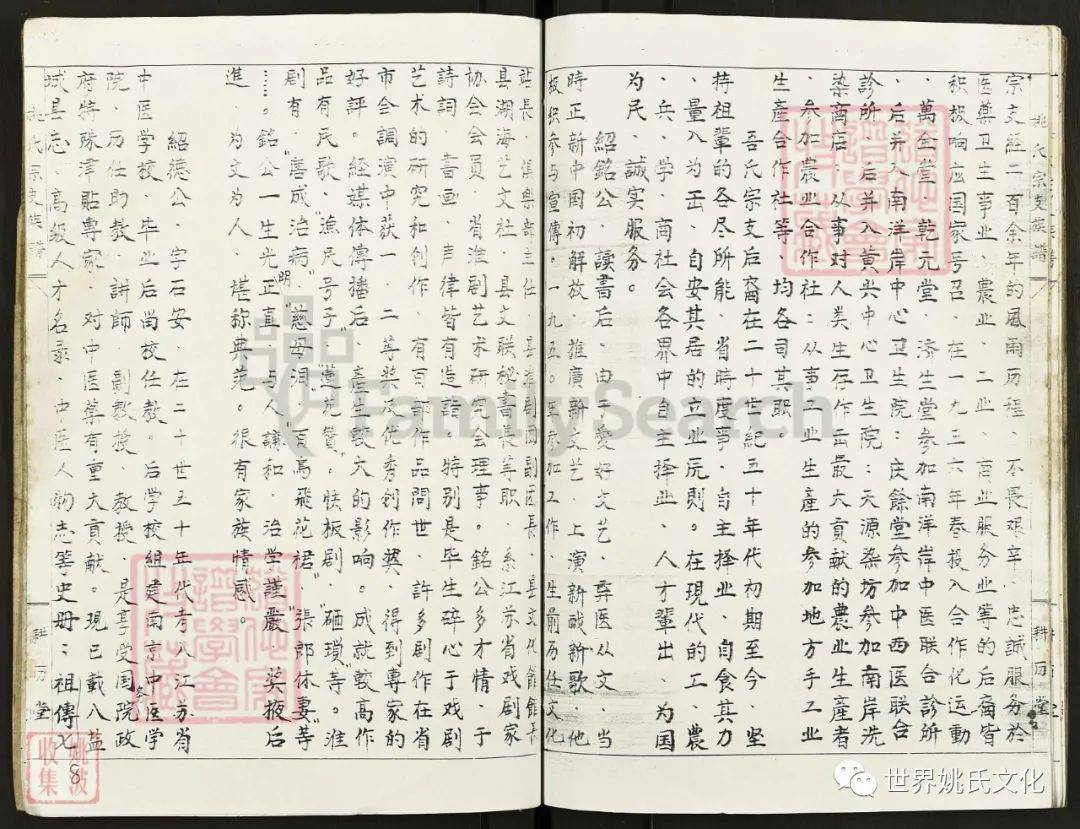 宗文经二百余年的風雨历程、不畏艰辛、忠誠服务於
医藥卫生事业、農业、工业、商业服务业等的后裔皆
积极响应国家号召、在一九五六年春投入合作化运動
、萬全堂、乾元堂、济生堂参加南洋岸中医联合診所
、后并入南洋岸中心卫生院：庆餘堂参加中西医联合
診所、后并入黄尖中心卫生院：天源染坊参加南岸洗
染商店、从事对人类生存作出最大贡献的農业生產者
、参加農业合作社：从事工业生產的参加地方手工业
生產合作社等、均各司其职。
吾氏宗支后裔在二十世紀五十年代初期至今、坚
持祖輩的各尽所能、省時度事、自主择业、自食其力
、量入为出、自安其居的立业元則。在現代的工、農
、兵、学、商社会各界中自主择业、人才輩出、为國
为民、誠实服务。
紹銘公、讀書后、由于愛好文艺、弃医从文、当
時正新中国初解放、推廣新文艺、上演新戲新歌、他
积极参与宣傳。一九五〇年参加工作、生前历任文化
站長、俱樂部主任、县淮剧团副团長、县文化館館長
县湖海艺文社、县文联秘書長等职、系江苏省戏剧家
协会会員、省淮剧艺术研究会理事。銘公多才情、于
詩詞、書画、声律皆有造詣。特别是毕生碎心于戏剧
艺术的研究和創作、有百部作品問世、許多剧作在省
市会調演中获一、二等奖及优秀創作奬、得到專家的
好評。经媒体傳播后、產生較大的影响。成就較高作
品有民歌、"漁民号子"、"蓮花贊"。快板剧、"砸瑣"等。淮
剧有、"唐成治病"、"慈母泪"、"百鳥飛花裙"、"張郎休妻"等
……。銘公一生光明正直、与人謙和、治学謹嚴、奖掖后
進、为文为人、堪称典范。很有家族情感。
紹德公、字石安、在二十世五十年代考入江苏省
中医学校、毕业后留校任教。后学校組建南京中医学
院、历任助教、講師、副教授、教授、是享受国务院政
府特殊津貼專家、对中医藥有重大貢献。現已載入盐
城县志、高级人才名录、中医人物志等史册：祖傳
姚氏宗支族譜
耕历堂
8
姚波
收集
FamilySearch
世界姚氏文化